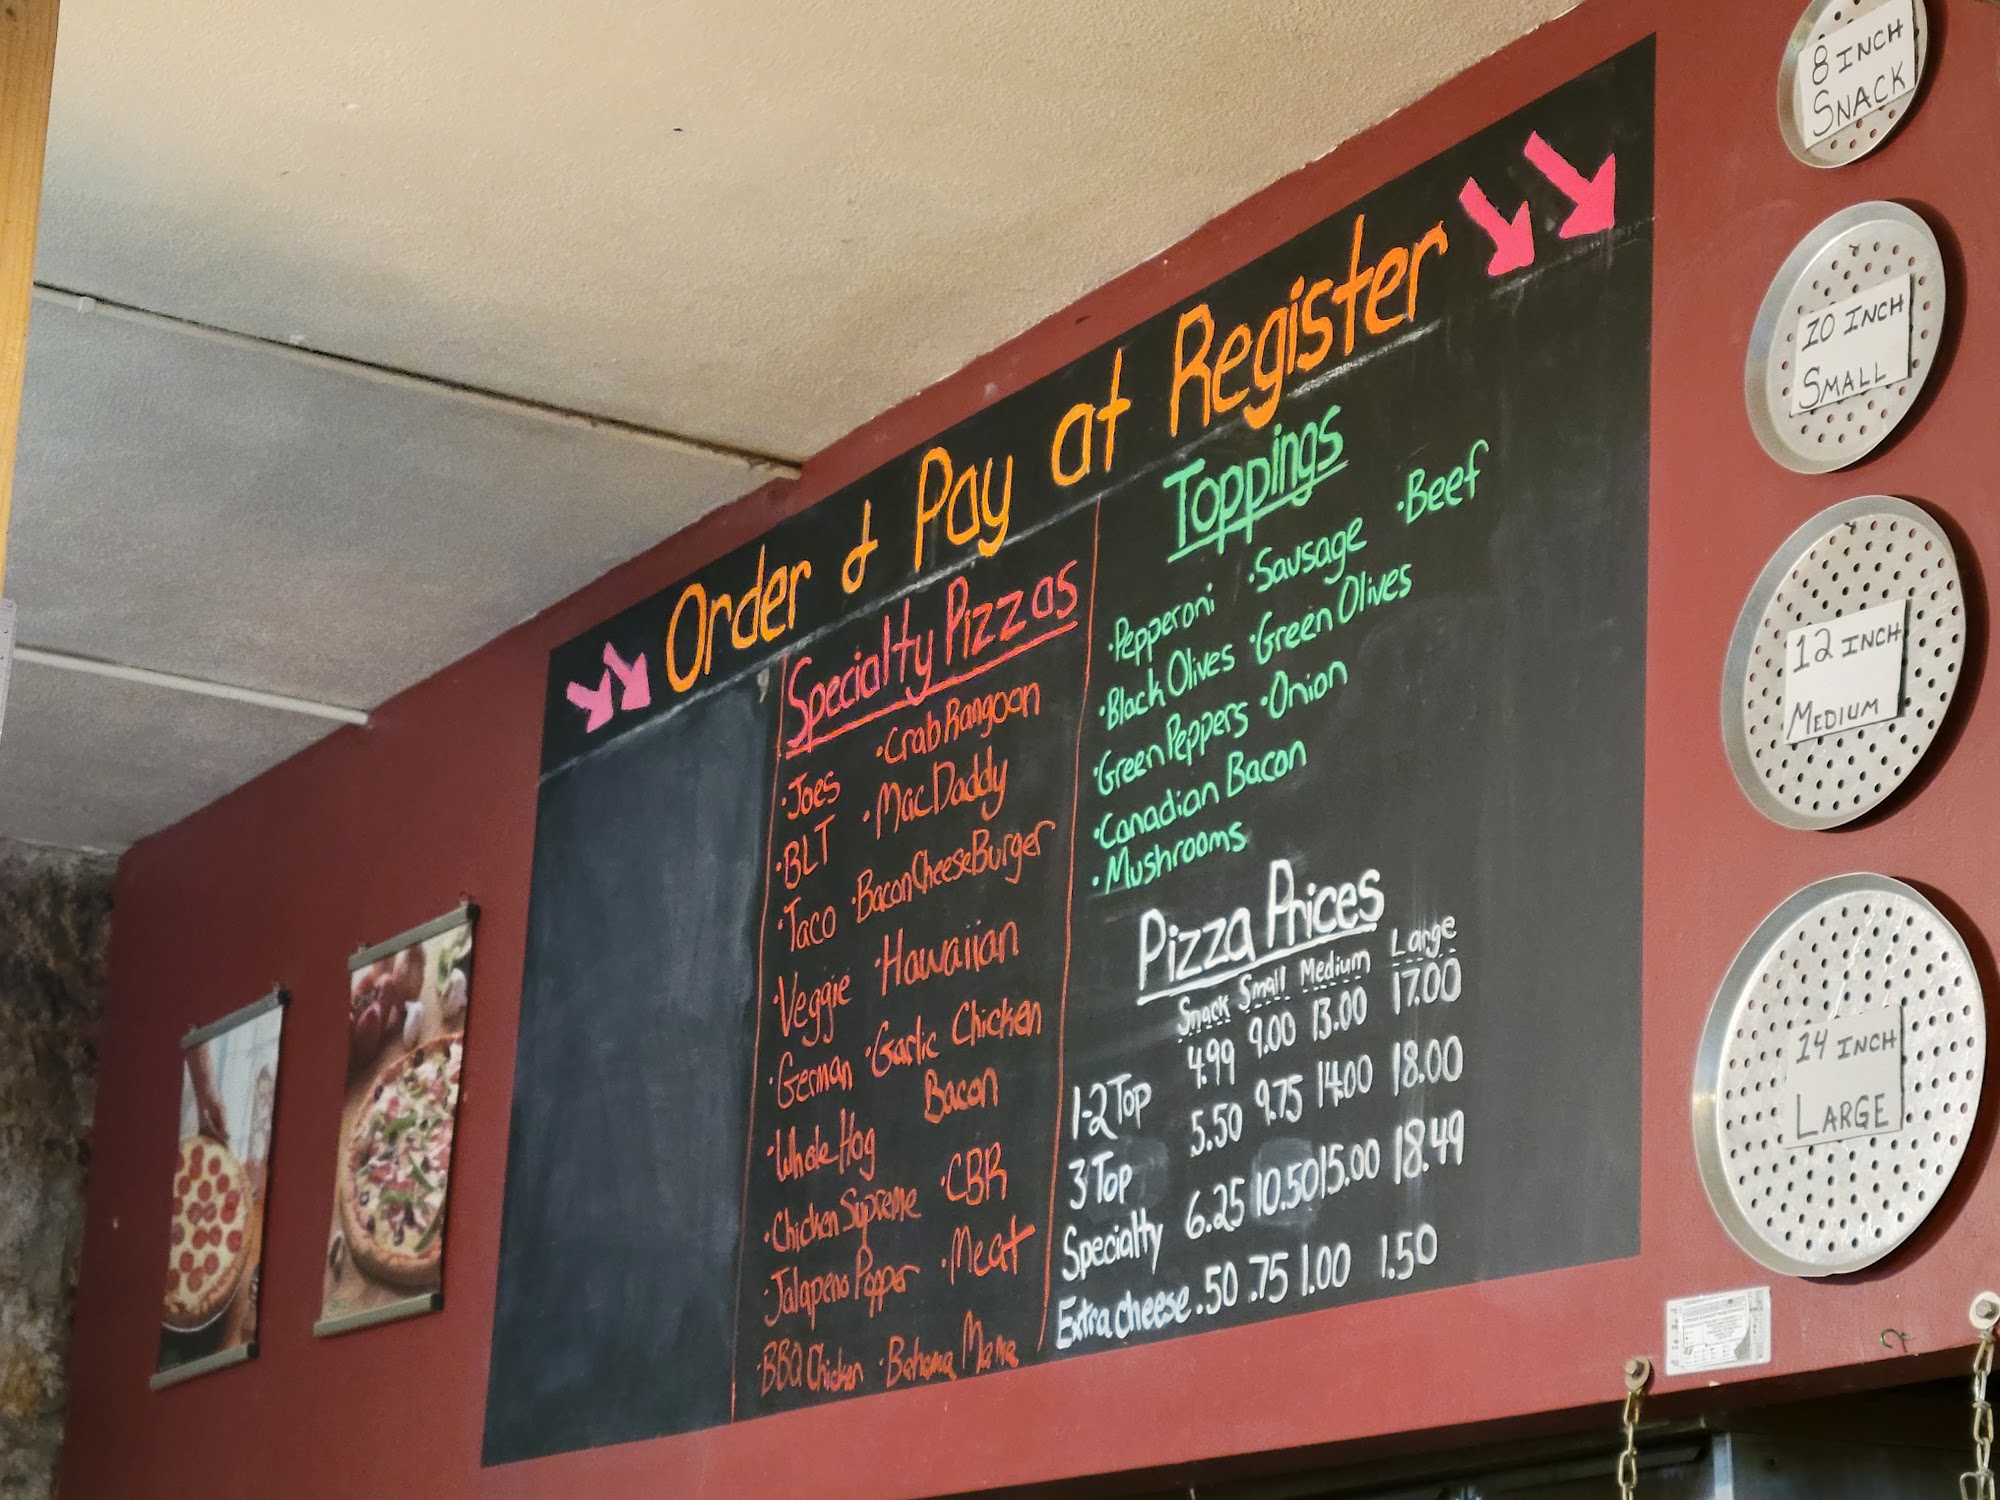 Order & Pay at Register
Specialty Pizzas
·Joes ·Crab Rangoon
·BLT ·Mac Daddy
·Taco ·Bacon Cheese Burger
·Veggie ·Hawaiian
·German ·Garlic Chicken
Bacon
·Whole Hog
·Chicken Supreme ·CBR
·Jalapeno Popper ·Meat
·BBQ Chicken ·Bahama Mama
Toppings
·Pepperoni ·Sausage ·Beef
·Black Olives ·Green Olives
·Green Peppers ·Onion
·Canadian Bacon
·Mushrooms
Pizza Prices
Snack Small Medium Large
1-2 Top 4.99 9.00 13.00 17.00
3 Top 5.50 9.75 14.00 18.00
Specialty 6.25 10.50 15.00 18.49
Extra cheese .50 .75 1.00 1.50
8 INCH
SNACK
10 INCH
SMALL
12 INCH
MEDIUM
14 INCH
LARGE